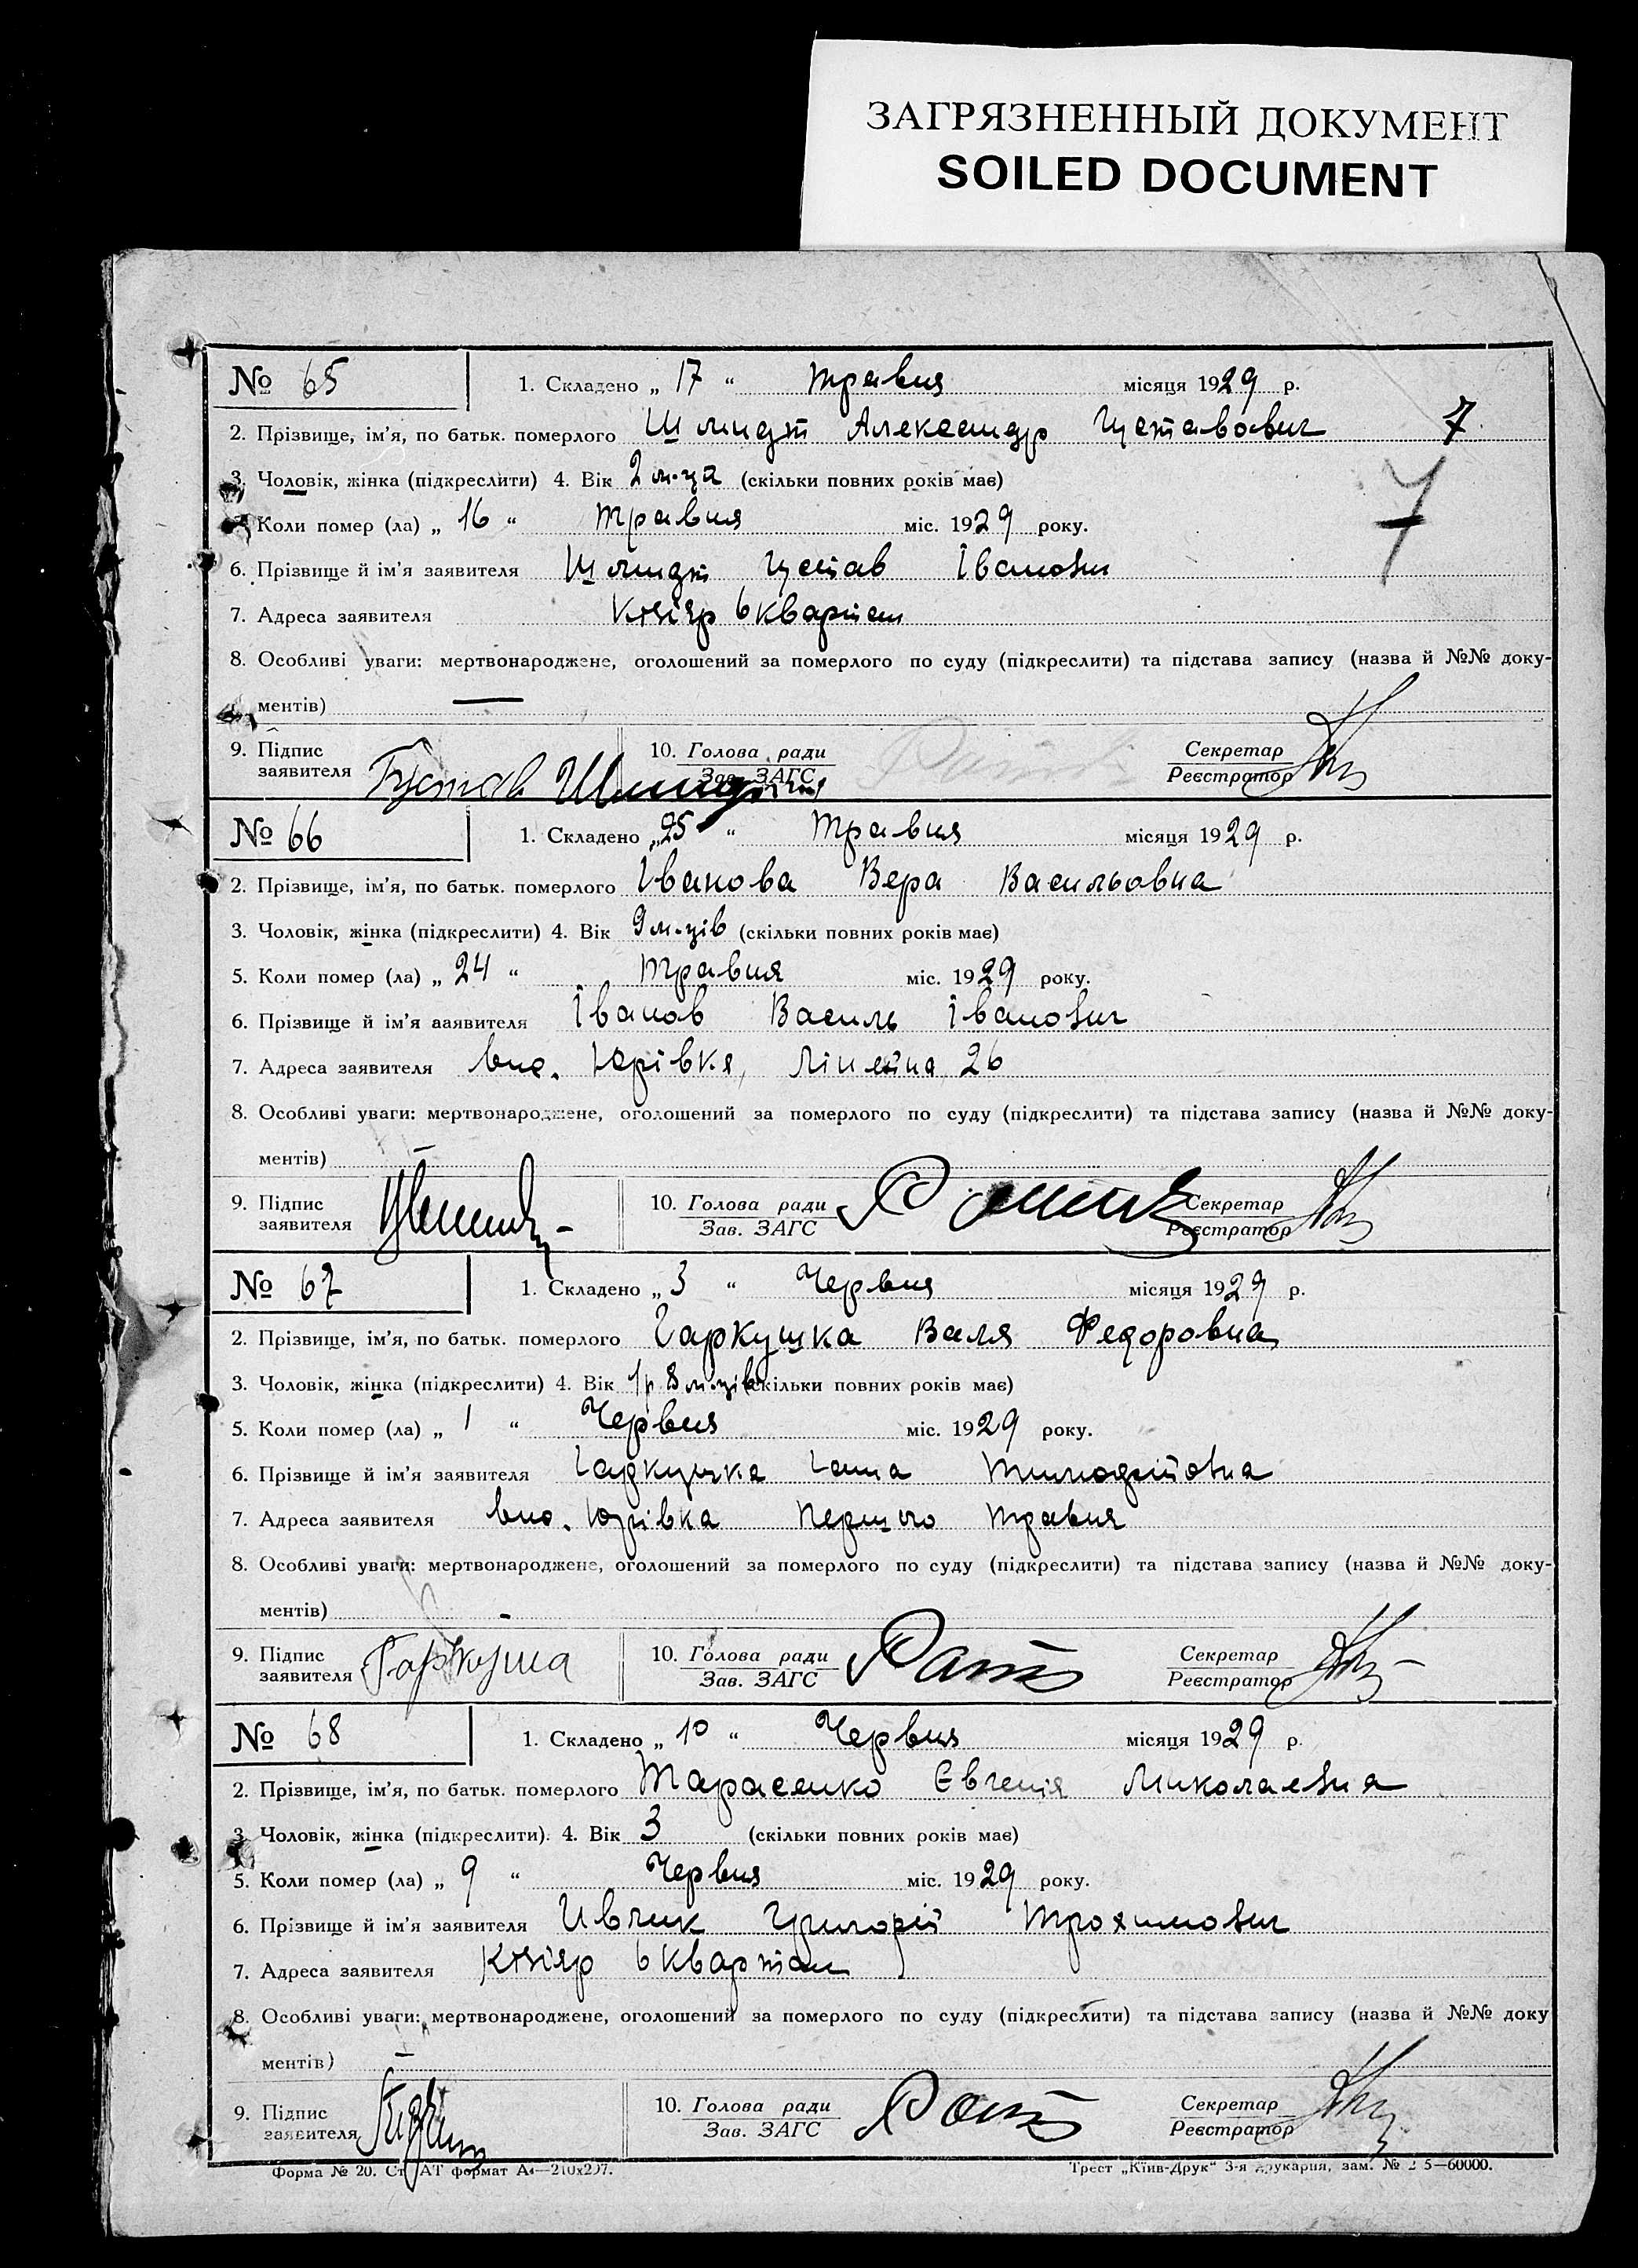 ЗАГРЯЗНЕННЫЙ ДОКУМЕНТ
SOILED DOCUMENT
№ 65 1. Складено „ 17 “ травня місяця 1929 р.
2. Прізвище, ім'я, по батьк. померлого Шмидт Александр Густавович 7
3. Чоловік, жінка (підкреслити) 4. Вік 2 м-ца (скільки повних років має) 7
Коли помер (ла) „ 16 “ травня міс. 1929 року.
6. Прізвище й ім'я заявителя Шмидт Густав Іванович
7. Адреса заявителя 6 квартал
8. Особливі уваги: мертвонароджене, оголошений за померлого по суду (підкреслити) та підстава запису (назва й №№ доку-
ментів) —
9. Підпис заявителя Густав Шмидт 10. Голова ради Зав. ЗАГС Секретар Реєстратор
№ 66 1. Складено „ 25 “ травня місяця 1929 р.
2. Прізвище, ім'я, по батьк. померлого Іванова Вера Васильовна
3. Чоловік, жінка (підкреслити) 4. Вік 9 м-ців (скільки повних років має)
5. Коли помер (ла) „ 24 “ травня міс. 1929 року.
6. Прізвище й ім'я заявителя Іванов Василь Іванович
7. Адреса заявителя вис. Юрівка, Лінейна 26
8. Особливі уваги: мертвонароджене, оголошений за померлого по суду (підкреслити) та підстава запису (назва й №№ доку-
ментів) —
9. Підпис заявителя 10. Голова ради Зав. ЗАГС Секретар Реєстратор
№ 67 1. Складено „ 3 “ Червня місяця 1929 р.
2. Прізвище, ім'я, по батьк. померлого Гаркушка Валя Федоровна
3. Чоловік, жінка (підкреслити) 4. Вік 1 р 8 м-ців (скільки повних років має)
5. Коли помер (ла) „ 1 “ Червня міс. 1929 року.
6. Прізвище й ім'я заявителя Гаркушка Ганна
7. Адреса заявителя вис. Юрівка Першого травня
8. Особливі уваги: мертвонароджене, оголошений за померлого по суду (підкреслити) та підстава запису (назва й №№ доку-
ментів) -
9. Підпис заявителя 10. Голова ради Зав. ЗАГС Секретар Реєстратор
№ 68 1. Складено „ 10 “ Червня місяця 1929 р.
2. Прізвище, ім'я, по батьк. померлого Тарасенко Євгенія Миколаевна
3. Чоловік, жінка (підкреслити). 4. Вік 3 (скільки повних років має)
5. Коли помер (ла) „ 9 “ Червня міс. 1929 року.
6. Прізвище й ім'я заявителя Ивчик Григорій Трохимович
7. Адреса заявителя 6 квартал
8. Особливі уваги: мертвонароджене, оголошений за померлого по суду (підкреслити) та підстава запису (назва й №№ доку
ментів) —
9. Підпис заявителя 10. Голова ради Зав. ЗАГС Секретар Реєстратор
Форма № 20. формат А4—210х297. Трест „Київ-Друк“ 3-я друкарня, зам. № 5—60000.